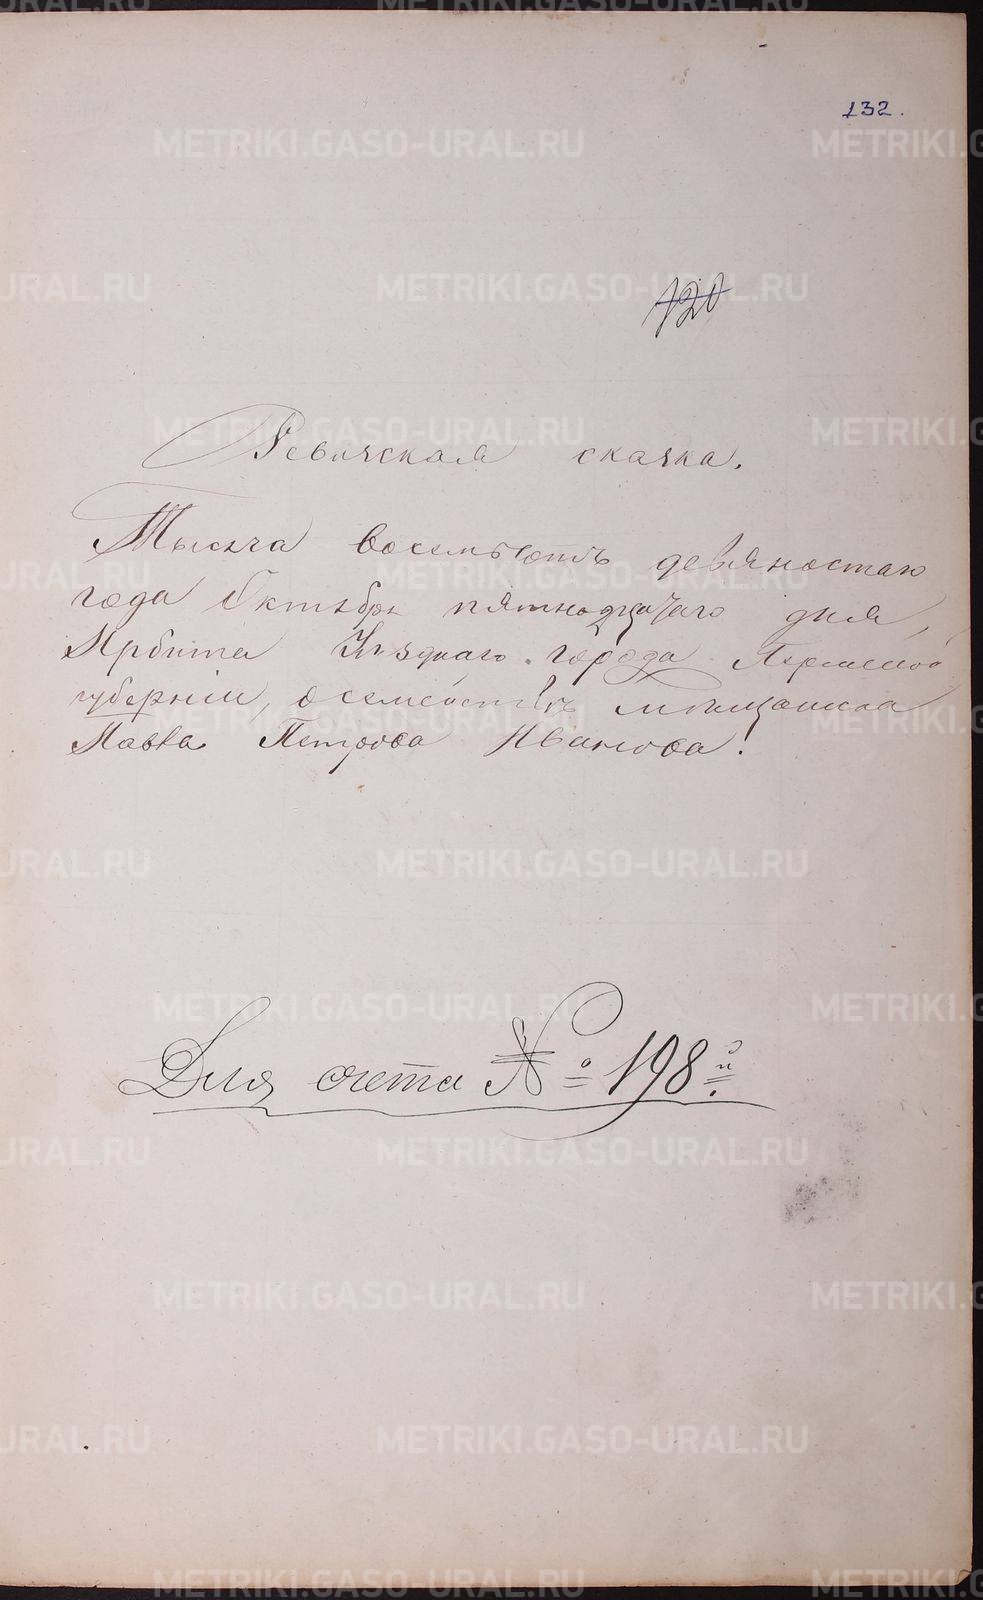 132.
120
Ревичская сказка.
Тысяча восемьсотъ девяностаго
года Октября пятнадцатаго дня,
Ирбита Уѣзднаго города Пермской
губерніи, о семействѣ мѣщанина
Павла Петрова Иванова!
Для счета № 198й